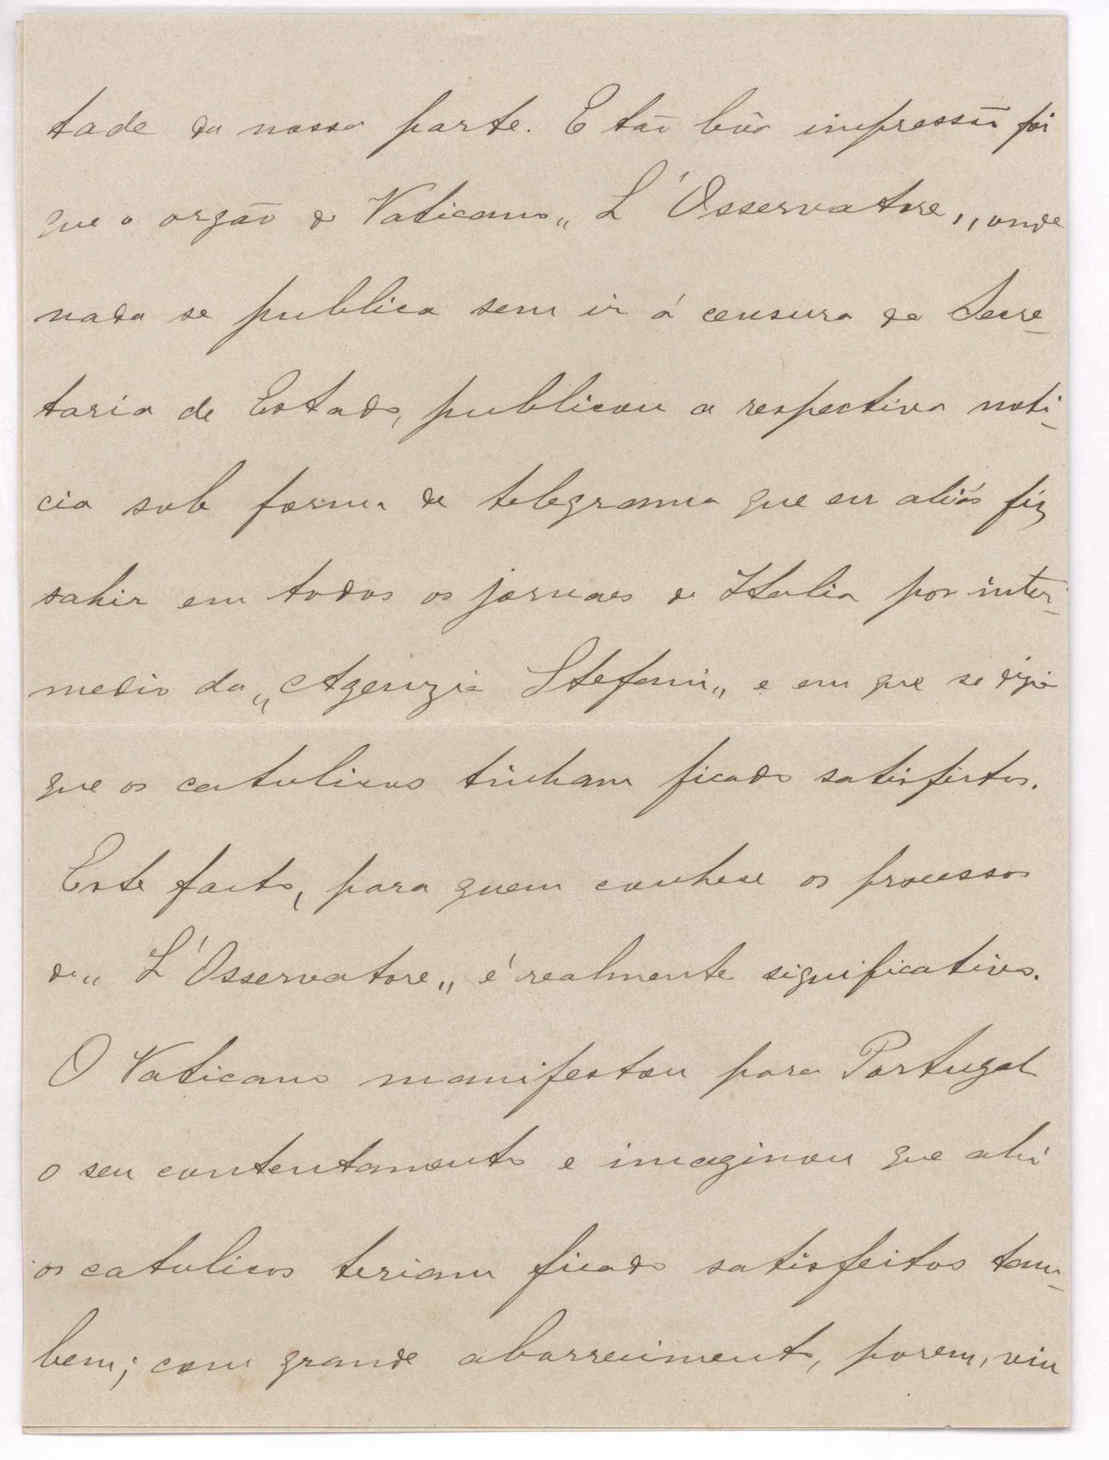 tade da nossa parte. E tão bôa impressão foi
que o orgão do Vaticano „ L'Osservatore „, onde
nada se publica sem ir á censura da Secre-
taria de Estado, publicou a respectiva noti-
cia sob forma de telegramma que eu aliás fiz
sahir em todos os jornaes da Italia por inter-
medio da „ Agenzia Stefani „ e em que se dizia
que os catolicos tinham ficado satisfeitos.
Este facto, para quem conhece os processos
do „ L'Osservatore „ é realmente significativo.
O Vaticano manifestou para Portugal
o seu contentamento e imaginou que ahi
os catolicos teriam ficado satisfeitos tam-
bem; com grande aborrecimento, porem, viu